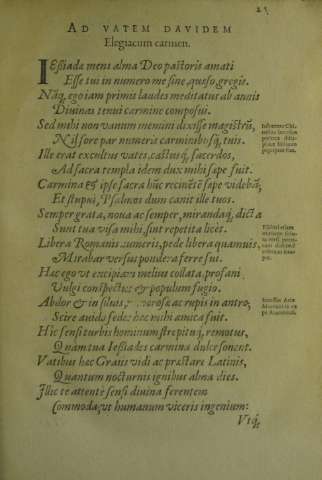 AD VATEM DAVIDEM
Elegiacum carmen.
IEssiade mens alma Deo pastoris amati
Esse tui in numero me sine, quæso, gregis.
Náq, ego iam primis laudes meditatus ab annis
Divinas tenui carmine composui.
Sed mihi non vanum memini dixisse magistrũ,
Nil fore par numeris carminibusq́, tuis.
Ille erat excultus vates, castusq́, sacerdos,
Ad sacra templa idem dux mihi sæpe fuit.
Carmina & ipse sacra hũc recinẽtẽ sæpe videbã,
Et stupui, Psalmos dum canit ille tuos.
Semper grata, noua ac semper, mirandaq́, dicta
Sunt tua visa mihi, sint repetita licet.
Libera Romanis numeris, pede libera quamuis,
Mirabar versus pondera ferre sui.
Hac ego vt excipiam melius collata, profani
Vulgi conspectus & populum fugio.
Abdor & in siluis, ac rupis in antro,
Scire auido sedes hæc mihi amica fuit.
Hic sensi turbis hominum strepituq́, remotus,
Quam tua Iessiades carmina dulce sonent.
Vatibus hæc Graiis vidi ac præstare Latinis,
Quantum nocturnis ignibus alma dies.
Illic te attente sensi diuina ferentem
Commoda, vt humanum viceris ingenium:
Vtq́,